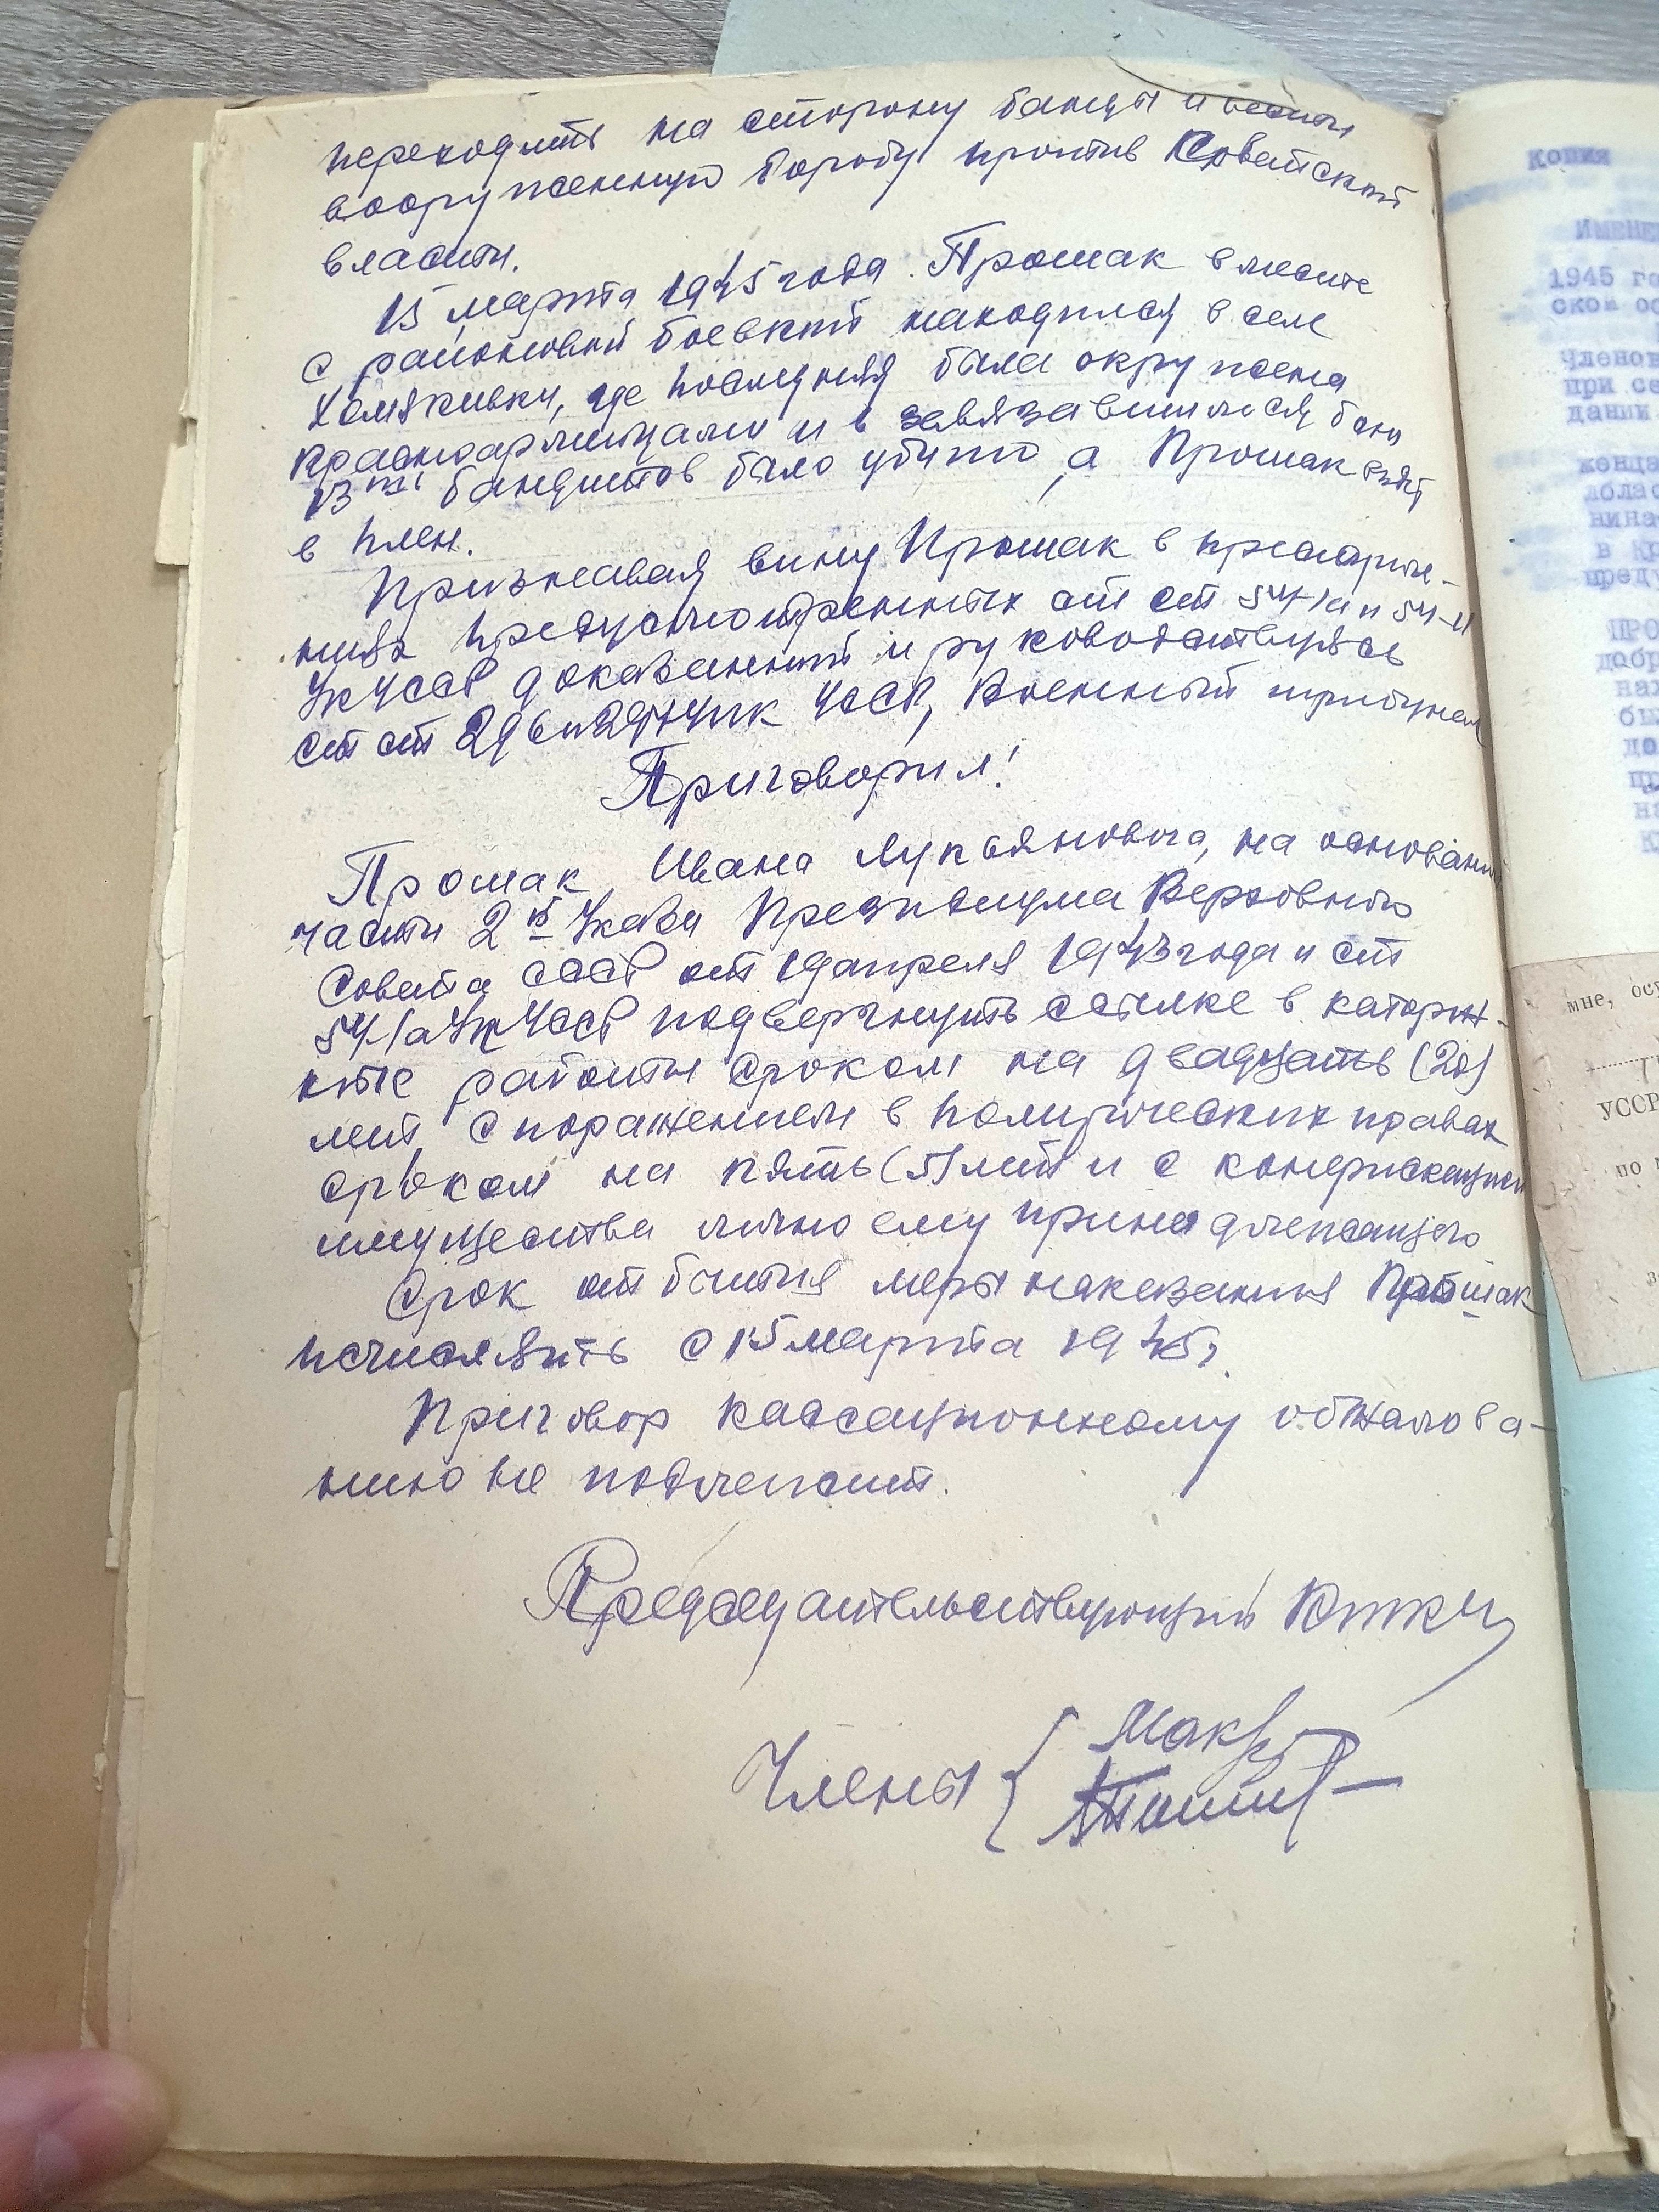 переходить на сторону банды и вести
вооруженную борьбу против Советской
власти.
15 марта 1945 года. Прошак вместе
с районовой боевкой находился в селе
Хомякивки, где последняя была окружена
красноармейцами и в завязавшимся бою
13ть бандитов было убито, а Прошак взят
в плен.
Признавая вину Прошак в преступле-
ниях предусмотренных ст ст 54-1а и 54-11
УК УССР доказанной и руководствуясь
ст ст 296 и 297 УПК УССР, Военный трибунал
Приговорил!
Прошак, Ивана Лукьяновича, на основании
части 2й Указа Президиума Верховного
Совета СССР от 19 апреля 1943 года и ст
54-1а УК УССР подвергнуть ссылке в каторж-
ные работы сроком на двадцать (20)
лет, с поражением в политических правах
сроком на пять (5) лет и с конфискацией
имущества лично ему принадлежащего
Срок отбытия меры наказания Прошак
исчислять с 15 марта 1945 г.
Приговор кассационному обжалова-
нию не подлежит.
Председательствующий
Члены {
Копия
ИМЕНЕ
1945 го
ской об
членов
при се
дании
в Кр
преду
ПРО
добр
на
бы
до
пр
на
К
мне, осу
УССР
по